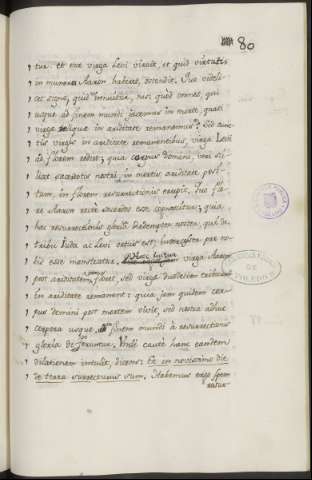 80
tur. et one virga Levi viruit, et quid virtutis
in munere Aaron haberet, ostendit. Quo videli-
cet signo, quid innuitur, nisi quod omnes, qui
usque ad finem mundi jacemus in morte, quasi
virgæ reliquæ in ariditate remanemus? Sed cunc-
tis virgis in ariditate remanentibus, virga Levi
ad florem rediit; quia corpus Domini, veri sci-
licet sacerdotis nostri, in mortis ariditate posi-
tum, in florem resurrectionis erupit. Quo flo-
re Aaron recte sacerdos esse cognoscitur; quia
hac resurrectionis gloria Redemptor noster, qui de
tribu Juda ac Levi ortus est, intercessor pro no-
bis esse monstratur. virga Aaron
post ariditatem floret, sed virgæ duodecim tribuum
in ariditate remanent; quia jam quidem cor-
pus Domini post mortem vivit, sed nostra adhuc
corpora usque finem mundi à resurrectionis
gloria differuntur. Unde caute hanc eandem
dilationem intulit, dicens: Et in novissimo die
de terra surrecturus sum. Habemus ergo spem